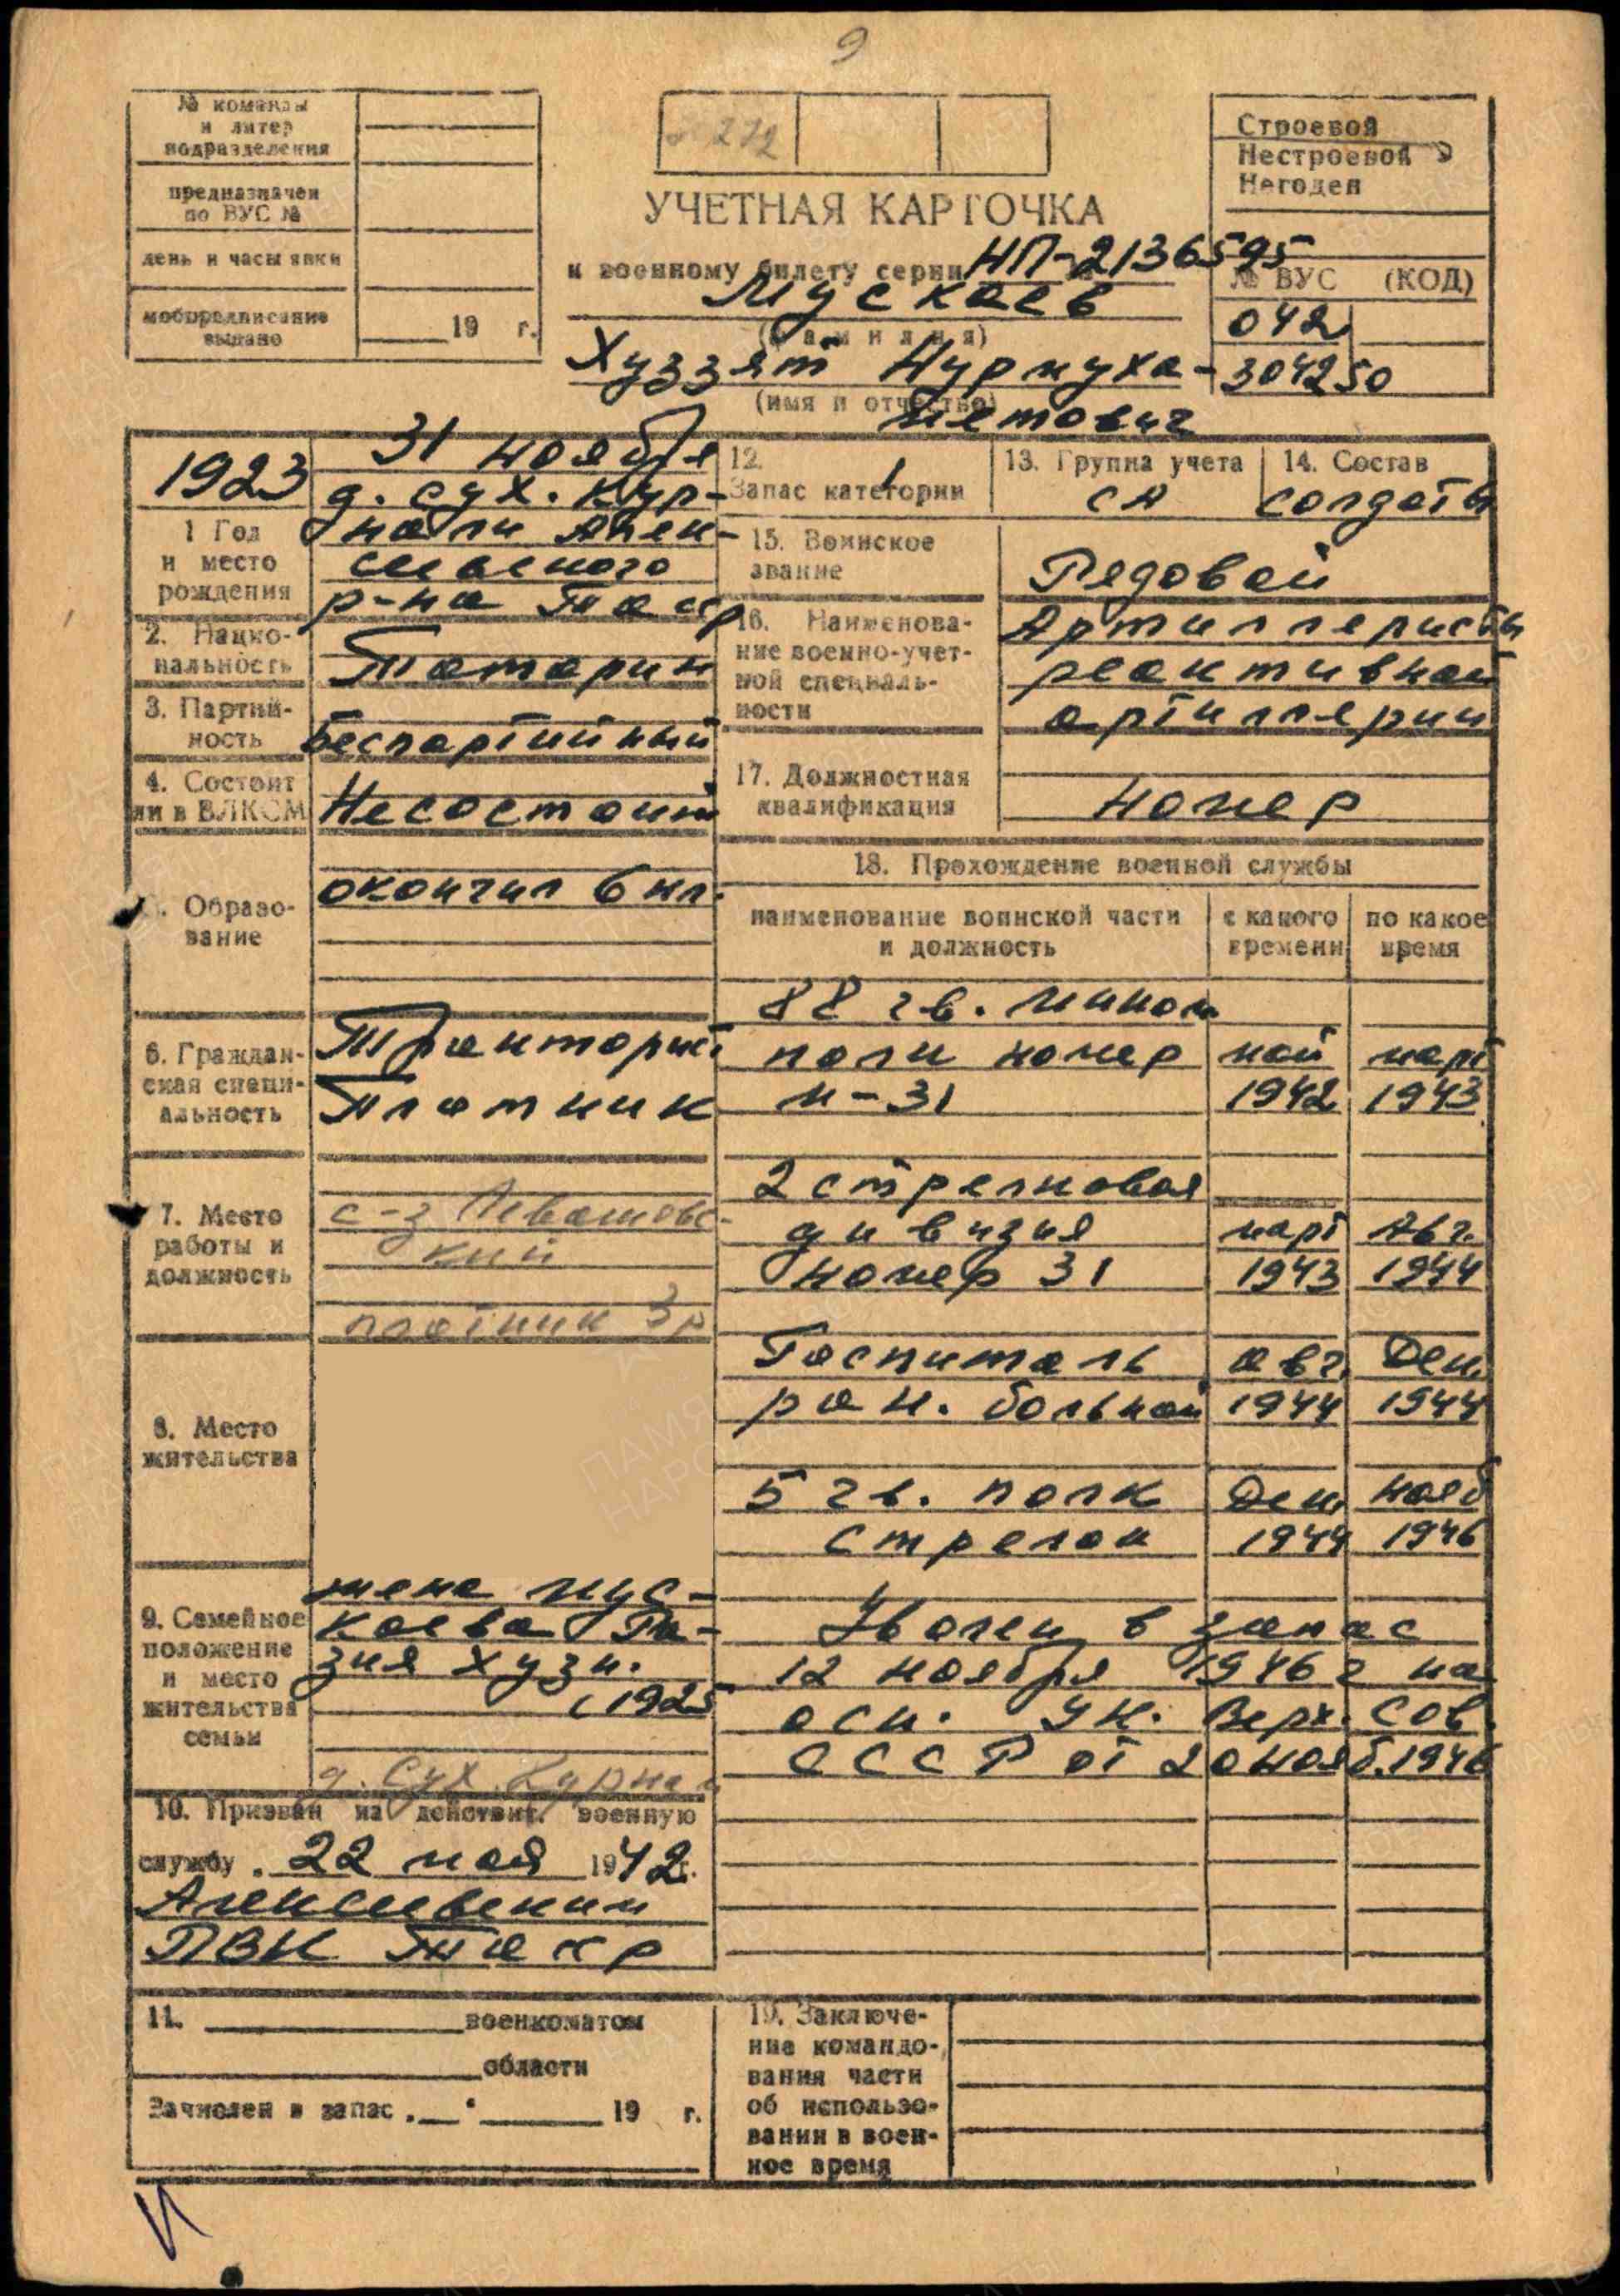 9
№ команды
и литер
подразделения
предназначен
по ВУС №
день и часы явки
мобпредписание
выдано
19 г.
272
УЧЕТНАЯ КАРТОЧКА
к военному билету серии НП-2136595
Мускаев
(фамилия)
Хуззят Нурмуха-
(имя и отчество)
метович
Строевой
Нестроевой
Негоден
№ ВУС (КОД)
042
304250
1923
1 Год
и место
рождения
31 ноября
д. Сух. Кур-
нали Алек-
сеевского
р-на Тасср
2. Нацио-
нальность
Татарин
3. Партий-
ность
беспартийный
4. Состоит
ли в ВЛКСМ
Несостоит
5. Образо-
вание
окончил 6 кл.
6. Граждан-
ская специ-
альность
Тракторист
Плотник
7. Место
работы и
должность
с-з Левашовс-
кий
плотник 3р
8. Место
жительства
9. Семейное
положение
и место
жительства
семьи
жена Мус-
каева Ра-
зия Хузи.
(1925
д. Сух. Курнали
10. Призван на действит. военную
службу. 22 мая 1942г.
Алексеевским
РВК Тасср
11. военкоматом
области
Зачислен в запас . . 19 г.
12.
Запас категории
1
13. Группа учета
СА
14. Состав
солдаты
15. Воинское
звание
Рядовой
16. Наименова-
ние военно-учет-
ной специаль-
ности
Артиллеристы
реактивной
артиллерии
17. Должностная
квалификация
номер
18. Прохождение военной службы
наименование воинской части
и должность
с какого
времени
по какое
время
88 гв. мином
полк номер май март
м-31 1942 1943
2 стрелковая
дивизия март Авг.
номер 31 1943 1944
Госпиталь авг. Дек.
ран. больной 1944 1944
5 гв. полк Дек. нояб
стрелок 1944 1946
Уволен в запас
12 ноября 1946 г на
осн. Ук. Верх. Сов.
СССР от 20 нояб.1946
19. Заключе-
ние командо-
вания части
об использо-
вании в воен-
ное время